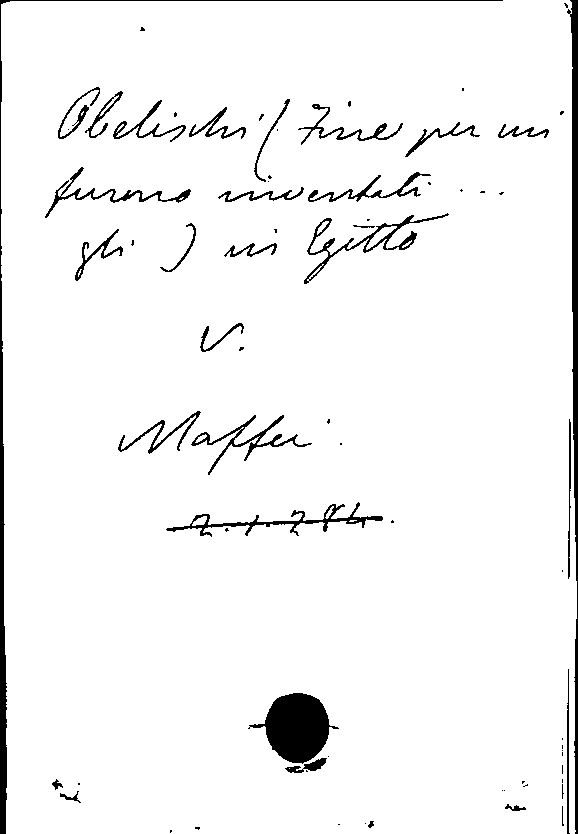 Obelischi (Fine per cui
furono inventati ...
gli) in Egitto
V.
Maffei.
2.1.284.